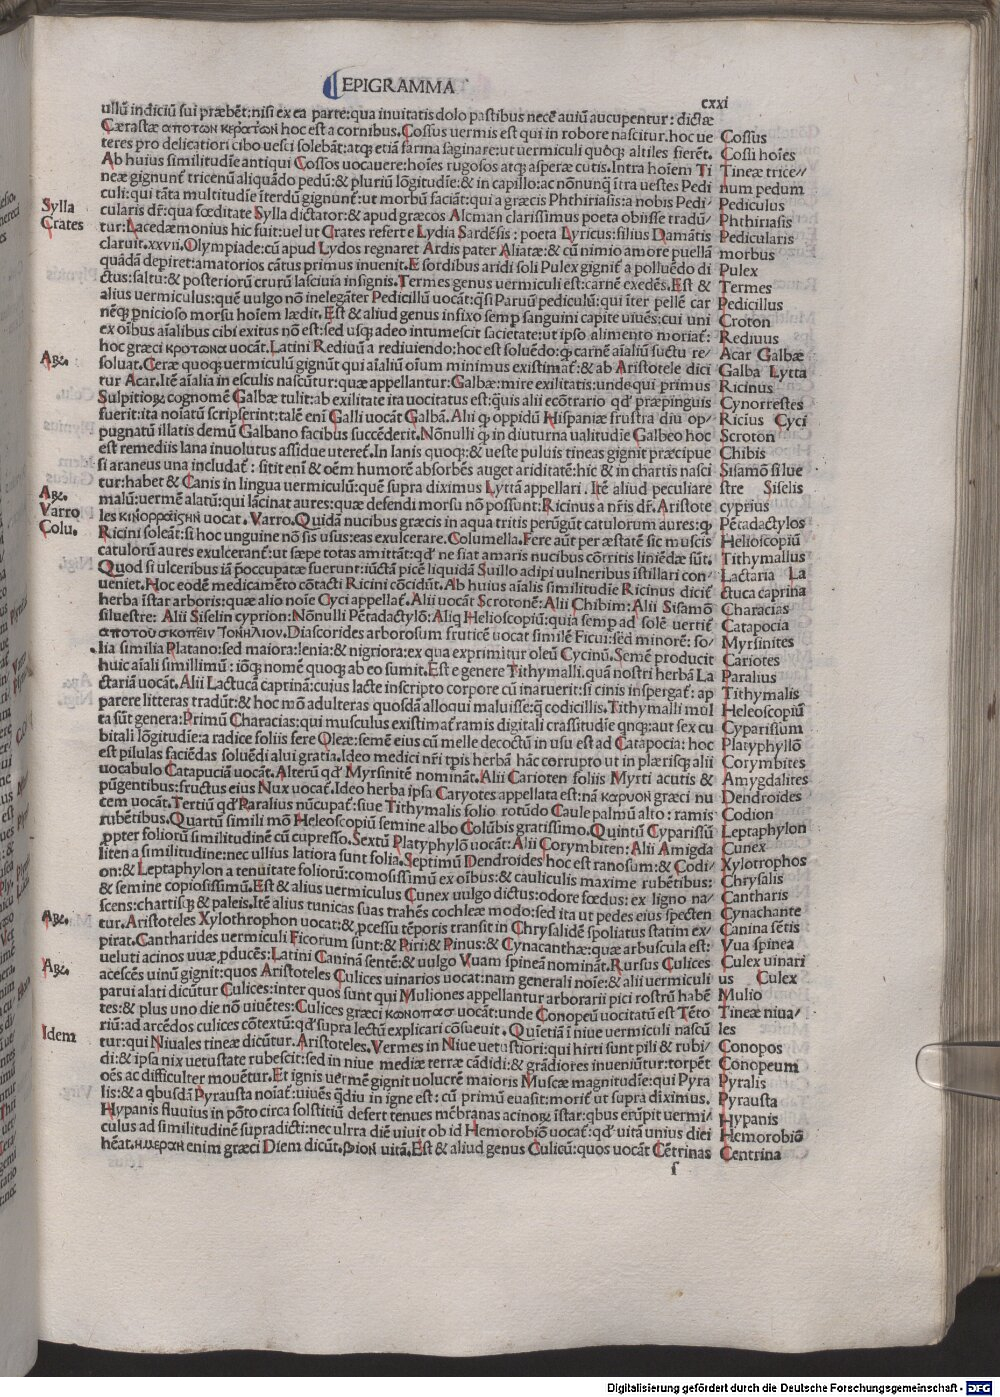 EPIGRAMMA
cxxi
ullũ indiciũ sui præbẽt: nisi ex ea parte: qua inuitatis dolo pastibus necẽ auiũ aucupentur: dictæ
Cærastæ αποτων κερατων hoc est a cornibus. Cossus uermis est qui in robore nascitur. hoc ue
teres pro delicatiori cibo uesci solebãt: atq; etiã farina saginare: ut uermiculi quoq; altiles fierẽt.
Ab huius similitudĩe antiqui Cossos uocauere: hoĩes rugosos atq; asperæ cutis. Intra hoĩem Ti
neæ gignunt᷑ tricenũ aliquãdo pedũ: & pluriũ lõgitudĩe: & in capillo: ac nõnunq̃ ĩtra uestes Pedi
culi: qui tãta multitudĩe ĩterdũ gignunt᷑: ut morbũ faciãt: qui a græcis Phthiriasis: a nobis Pedi
cularis dr̃: qua fœditate Sylla dictator: & apud græcos Alcman clarissimus poeta obiisse tradũ
tur: Lacedæmonius hic fuit: uel ut Crates refert e Lydia Sardẽsis: poeta Lyricus: filius Damãtis
claruit. xxvii. Olympiade: cũ apud Lydos regnaret Ardis pater Aliatæ: & cũ nimio amore puellã
quãdã depiret: amatorios cãtus primus inuenit. E sordibus aridi soli Pulex gignit᷑ a polluẽdo di
ctus: saltu: & posteriorũ crurũ lasciuia insignis. Termes genus uermiculi est: carnẽ exedẽs. Est &
alius uermiculus: quẽ uulgo nõ inelegãter Pedicillũ uocãt: q̃si Paruũ pediculũ: qui ĩter pellẽ car
nẽq; ꝑnicioso morsu hoĩem lædit. Est & aliud genus infixo semꝑ sanguini capite uiuẽs: cui uni
ex oĩbus aĩalibus cibi exitus nõ est: sed usq; adeo intumescit sacietate: ut ipso alimento moriat᷑:
hoc græci κροτωνα uocãt. Latini Rediuũ a rediuiendo: hoc est soluẽdo: q; carnẽ aĩaliũ suctu re-
soluat. Ceræ quoq; uermiculũ gignũt qui aĩaliũ oĩum minimus existimat᷑: & ab Aristotele dici
tur Acar. Itẽ aĩalia in esculis nascũtur: quæ appellantur: Galbæ: mire exilitatis: unde qui primus
Sulpitioꝝ cognomẽ Galbæ tulit: ab exilitate ita uocitatus est: q̃uis alii ecõtrario qd᷑ præpinguis
fuerit: ita noiatũ scripserint: talẽ eni Galli uocãt Galbã. Alii q; oppidũ Hispaniæ frustra diu op-
pugnatũ illatis demũ Galbano facibus succẽderit. Nõnulli q; in diuturna ualitudĩe Galbeo hoc
est remediis lana inuolutus assidue uteret᷑. In lanis quoq;: & ueste puluis tineas gignit præcipue
si araneus una includat᷑: sitit enĩ & oẽm humorẽ absorbẽs auget ariditatẽ: hic & in chartis nasci
tur: habet & Canis in lingua uermiculũ: quẽ supra diximus Lyttã appellari. Itẽ aliud peculiare
malũ: uermẽ alatũ: qui lãcinat aures: quæ defendi morsu nõ possunt: Ricinus a nr̃is dr̃. Aristote
les uocat. Varro. Quidã nucibus græcis in aqua tritis perũgũt catulorum aures: q;
Ricini soleãt: si hoc unguine nõ sis usus: eas exulcerare. Columella. Fere aũt per æstatẽ sic muscis
catulorũ aures exulcerant᷑: ut sæpe totas amittãt: qd᷑ ne fiat amaris nucibus cõtritis liniẽdæ sũt.
Quod si ulceribus iã p̃occupatæ fuerunt: iũctã picẽ liquidã Suillo adipi uulneribus ĩstillari con-
ueniet. Hoc eodẽ medicamẽto cõtacti Ricini cõcidũt. Ab huius aĩalis similitudĩe Ricinus dicit᷑
herba ĩstar arboris: quæ alio noĩe Cyci appellat᷑. Alii uocãt Scrotonẽ: Alii Chibim: Alii Sisamõ
siluestre: Alii Siselin cyprion: Nõnulli Pẽtadactylõ: Aliq̃ Helioscopiũ: quia semꝑ ad solẽ uertit᷑
αποτου σκοπειν τονηλιον. Diascorides arborosum fruticẽ uocat similẽ Ficui: sed minorẽ: fo-
lia similia Platano: sed maiora: lenia: & nigriora: ex qua exprimitur oleũ Cycinũ. Semẽ producit
huic aĩali simillimũ: iõq; nomẽ quoq; ab eo sumit. Est e genere Tithymalli. quã nostri herbã La
ctariã uocãt. Alii Lactucã caprinã: cuius lacte inscripto corpore cũ inaruerit: si cinis inspergat᷑: ap
parere litteras tradũt: & hoc mõ adulteras quosdã alloqui maluisse: q̃ codicillis. Tithymalli mul
ta sũt genera: Primũ Characias: qui musculus existimat᷑ ramis digitali crassitudĩe qnq;: aut sex cu
bitali lõgitudĩe: a radice foliis fere Oleæ: semẽ eius cũ melle decoctũ in usu est ad Catapocia: hoc
est pilulas faciẽdas soluẽdi alui gratia. Ideo medici nr̃i tp̃is herbã hãc corrupto ut in plærisq; alii
uocabulo Catapuciã uocãt. Alterũ qd᷑ Myrsinitẽ nominãt. Alii Carioten foliis Myrti acutis &
pũgentibus: fructus eius Nux uocat᷑. Ideo herba ipsa Caryotes appellata est: nã καρυον græci nu
cem uocãt. Tertiũ qd᷑ Paralius nũcupat᷑: siue Tithymalis folio rotũdo Caule palmũ alto: ramis
rubẽtibus. Quartũ simili mõ Heleoscopiũ semine albo Colũbis gratissimo. Quintũ Cyparissiũ
ꝓpter foliorũ similitudinẽ cũ cupresso. Sextũ Platyphylõ uocãt: Alii Corymbiten: Alii Amigda
liten a similitudine: nec ullius latiora sunt folia. Septimũ Dendroides hoc est ranosum: & Codi-
on: & Leptaphylon a tenuitate foliorũ: comosissimũ ex oĩbus: & cauliculis maxime rubẽtibus:
& semine copiosissimũ. Est & alius uermiculus Cunex uulgo dictus: odore fœdus: ex ligno na-
scens: chartisq; & paleis. Itẽ alius tunicas suas trahẽs cochleæ modo: sed ita ut pedes eius specten
tur. Aristoteles Xylothrophon uocat: & ꝓcessu tẽporis transit in Chrysalidẽ spoliatus statim ex-
pirat. Cantharides uermiculi Ficorum sunt: & Piri: & Pinus: & Cynacanthæ: quæ arbuscula est:
ueluti acinos uuæ ꝓducẽs: Latini Caninã sentẽ: & uulgo Vuam spineã nominãt. Rursus Culices
acescẽs uinũ gignit: quos Aristoteles Culices uinarios uocat: nam generali noĩe: & alii uermiculi
parui alati dicũtur Culices: inter quos sunt qui Muliones appellantur arborarii pici rostrũ habẽ
tes: & plus uno die nõ uiuẽtes: Culices græci κωνοπασ uocãt: unde Conopeũ uocitatũ est Tẽto
riũ: ad arcẽdos culices cõtextũ: qd᷑ supra lectũ explicari cõsueuit. Quĩetiã ĩ niue uermiculi nascũ
tur: qui Niuales tineæ dicũtur. Aristoteles. Vermes in Niue uetustiori: qui hirti sunt pili & rubi-
di: & ipsa nix uetustate rubescit: sed in niue mediæ terræ cãdidi: & grãdiores inueniũtur: torpẽt
oẽs ac difficulter mouẽtur. Et ignis uermẽ gignit uolucrẽ maioris Muscæ magnitudĩe: qui Pyra
lis: & a qbusdã Pyrausta noĩat᷑: uiuẽs q̃diu in igne est: cũ primũ euasit: morit᷑ ut supra diximus.
Hypanis fluuius in põto circa solstitiũ defert tenues mẽbranas acinoꝝ ĩstar: qbus erũpit uermi-
culus ad similitudinẽ supradicti: nec ulrra diẽ uiuit ob id Hemorobiõ uocat᷑: qd᷑ uitã unius diei
hẽat. ημεραν enim græci Diem dicũt. βιον uitã. Est & aliud genus Culicũ: quos uocãt Cẽtrinas
f
Sylla
Crates
Aꝝ.
Aꝝ.
Varro
Colu.
Aꝝ.
Aꝝ.
Idem
Cossus
Cossi hoĩes
Tineæ trice-
num pedum
Pediculus
Phthiriasis
Pedicularis
morbus
Pulex
Termes
Pedicillus
Croton
Rediuus
Acar Galbæ
Galba Lytta
Ricinus
Cynorrestes
Ricius Cyci
Scroton
Chibis
Sisamõ silue
stre Siselis
cyprius
Pẽtadactylos
Helioscopiũ
Tithymallus
Lactaria La
ctuca caprina
Characias
Catapocia
Myrsinites
Cariotes
Paralius
Tithymalis
Heleoscopiũ
Cyparissium
Platyphyllõ
Corymbites
Amygdalites
Dendroides
Codion
Leptaphylon
Cunex
Xylotrophos
Chrysalis
Cantharis
Cynachante
Canina sẽtis
Vua spinea
Culex uinari
us Culex
Mulio
Tineæ niua-
les
Conopos
Conopeum
Pyralis
Pyrausta
Hypanis
Hemorobiõ
Centrina
Digitalisierung gefördert durch die Deutsche Forschungsgemeinschaft - DFG